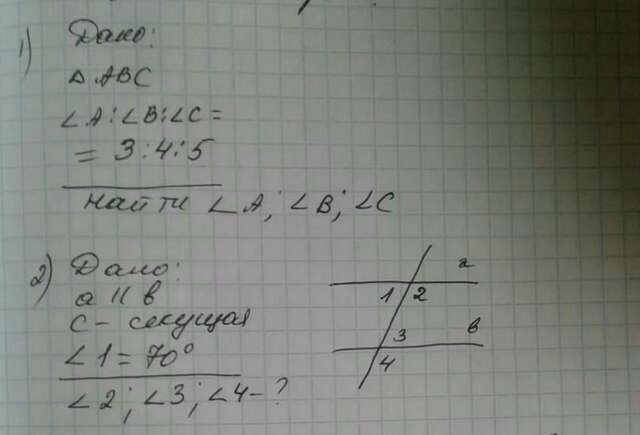 1) Дано:
Δ ABC
∠A:∠B:∠C =
= 3:4:5
найти ∠A; ∠B; ∠C
2) Дано:
a || b
c - секущая
∠1 = 70°
∠2; ∠3; ∠4 - ?
a
1 2
3 в
4